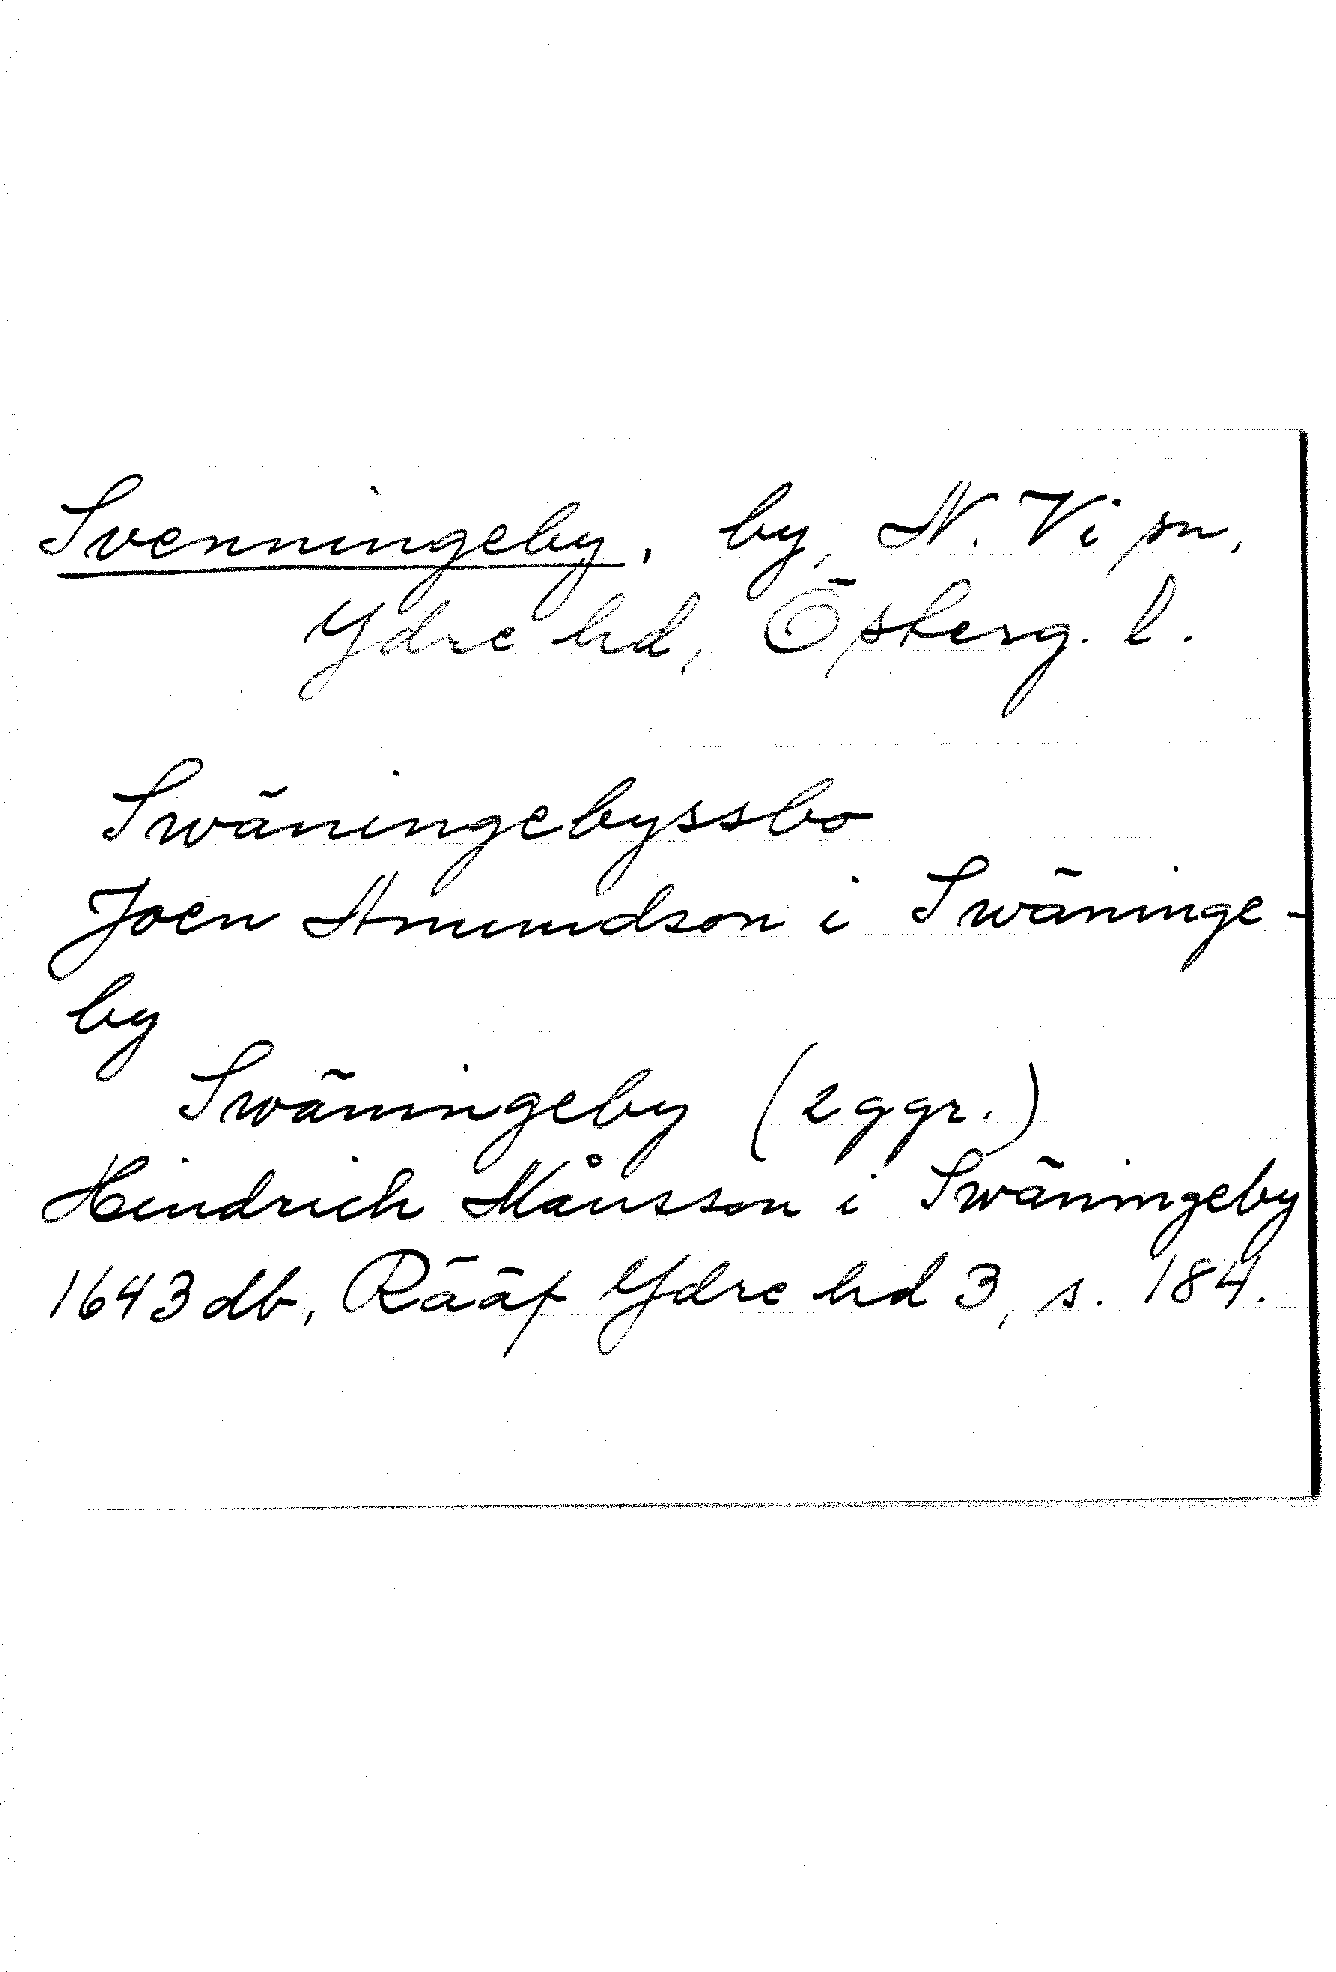 Svenningeby, by, N. Vi sn,
Ydre hd, Österg. l.
Swäningebyssbo
Joen Amundson i Swäninge-
by
Swäningeby (2 ggr.)
Hindrich Månsson i Swäningeby
1643 db, Rääf Ydre hd 3, s. 184.